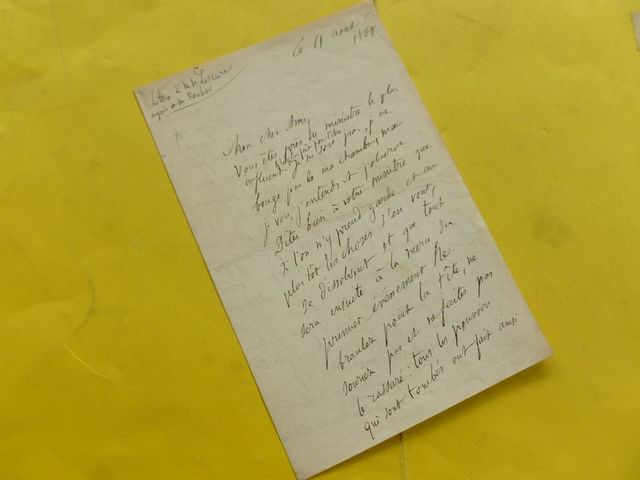 Le 11 août
1868
Lettre à
auprès de Mr Rouher
Mon cher Ami,
Vous êtes près du ministre le plus
influent
je ne sors pas, et ne
bouge pas de ma chambre, mais
je vois, j'entends et j'observe
Dites bien à votre ministre que
si l'on n'y prend garde et au
plus tôt les choses, j'en vout,
se dissolvent et que tout
sera ensuite à la merci du
premier événement Ne
branlez point la tête, ne
souriez pas et ne faites pas
le rassuré: tous les pouvoirs
qui sont tombés ont fait ainsi